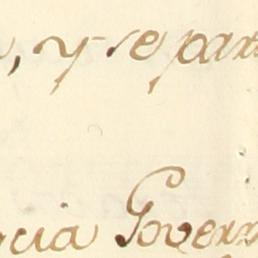 , y se par
cia Govern